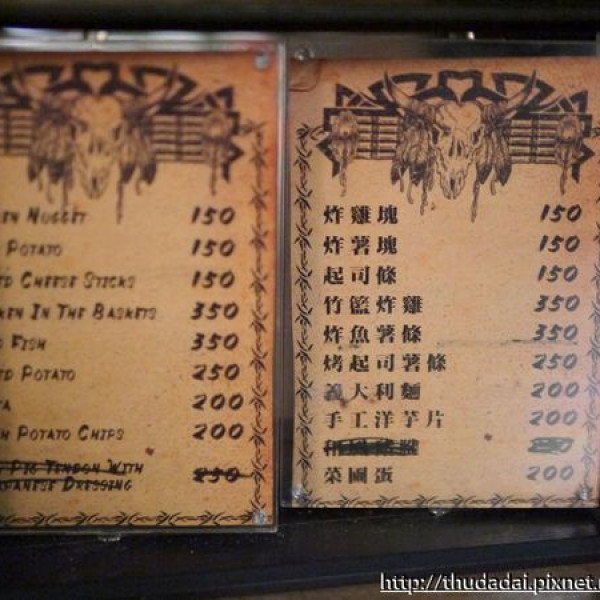 NUGGET 150
POTATO 150
CHEESE STICKS 150
IN THE BASKETS 350
FISH 350
POTATO 250
200
POTATO CHIPS 200
PIG TENDON WITH 250
DRESSING
炸雞塊 150
炸薯塊 150
起司條 150
竹籃炸雞 350
炸魚薯條 350
烤起司薯條 250
義大利麵 200
手工洋芋片 200
菜圃蛋 200
http://thudadai.pixnet.n